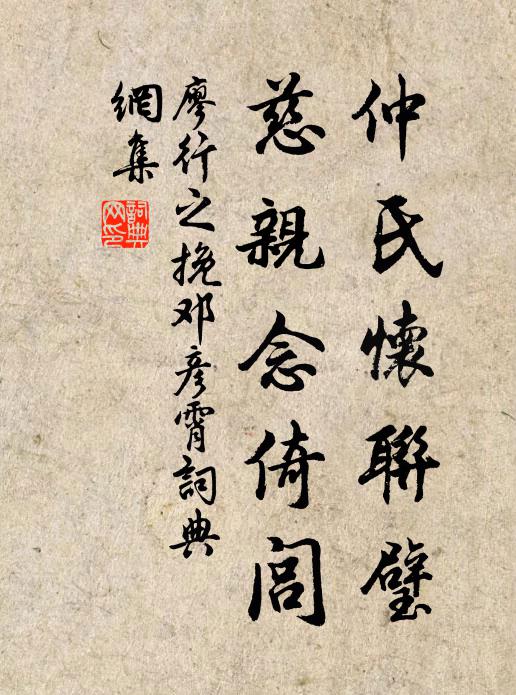 仲氏懷聯璧
慈親念倚閭
廖行之挽邓彥霄詞典
網集
詞典
网印